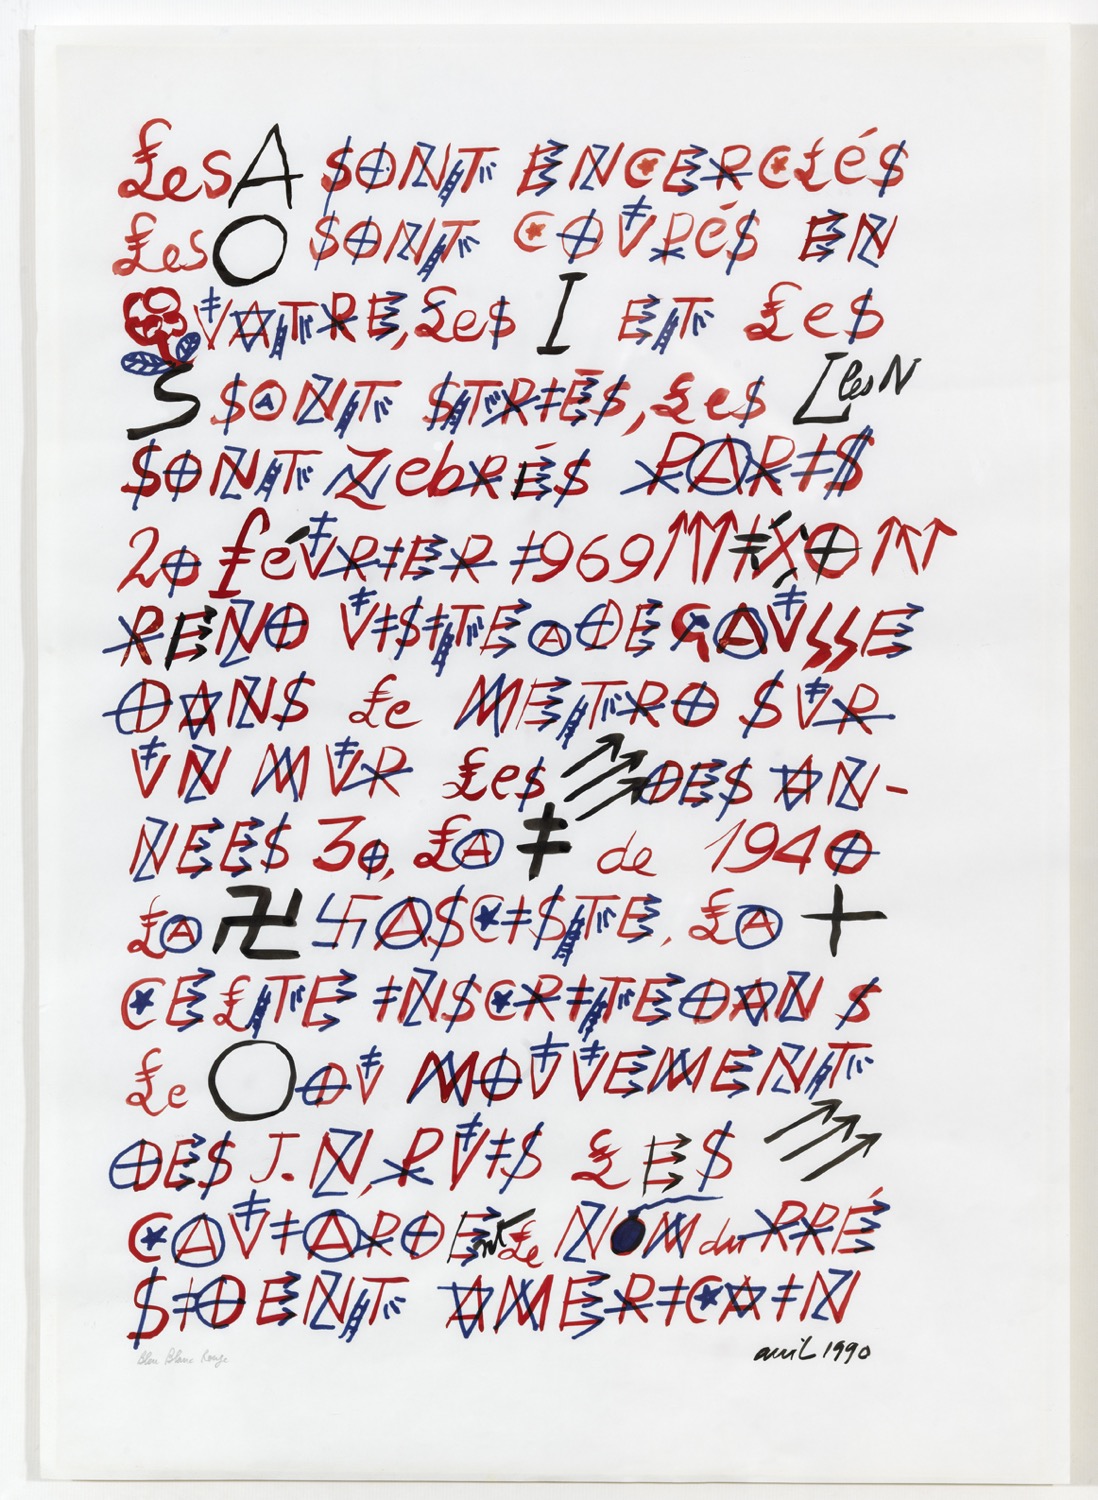 Les A SONT ENCERCLéS
Les O SONT COUPéS EN
QUATRE, LeS I ET LeS
S SONT STRIÉS, LeS L les N
SONT ZebRÉS PARIS
20 féVRIER 1969 NIXON
REND VISITE A DE GAULLE
DANS Le METRO SUR
UN MUR LeS ↗↗↗ DES AN-
NEES 30, LA ‡ de 1940
LA 卍 FASCISTE, LA +
CELTE INSCRITE DANS
Le O DU MOUVEMENT
DES J.N, PUIS LES ↗↗↗
CAVIARDEnt Le NOM du PRÉ
SIDENT AMERICAIN
Bleu Blanc Rouge avril 1990